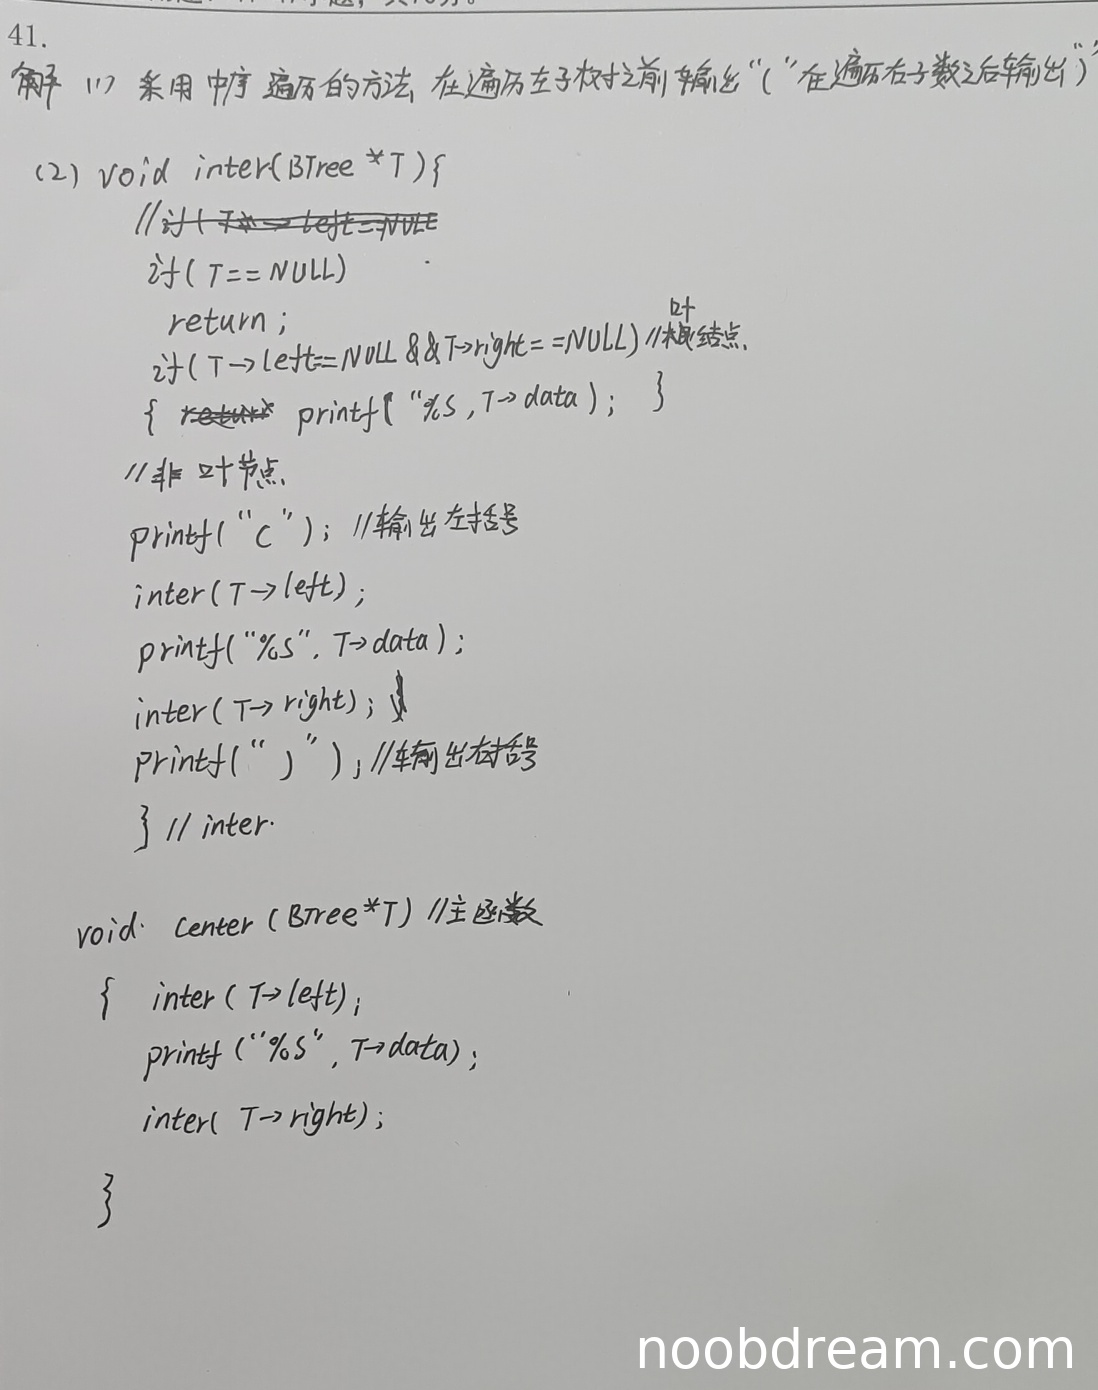 41.
解 (1) 采用中序遍历的方法，在遍历左子树之前输出“(”在遍历右子数之后输出“)”
(2) void inter(BTree *T){
//if(T* → left==NULL
if(T==NULL)
return;
叶
if(T→left==NULL &&T→right==NULL) //根结点.
{ return printf("%s,T→data); }
//非叶节点.
printf("(");  //输出左括号
inter(T→left);
printf("%s", T→data);
inter(T→right);
printf(")"); //输出右括号
} // inter.
void center(BTree*T) //主函数
{ inter(T→left);
printf("%s", T→data);
inter(T→right);
}
noobdream.com